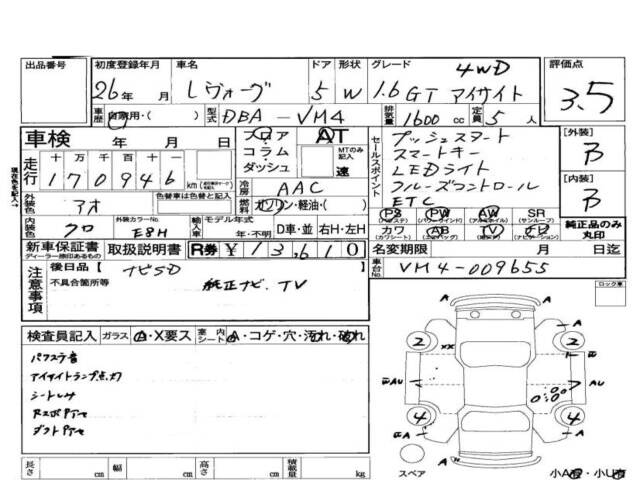 出品番号
初度登録年月
26年 月
車名
レヴォーグ
ドア
5
形状
W
グレード
4WD
1.6GT アイサイト
評価点
3.5
車歴
自家用・( )
型式
DBA-VM4
排気量
1600 cc
定員
5 人
車検 年 月 日
フロア
コラム
ダッシュ
AT
MTのみ記入
速
セールスポイント
プッシュスタート
スマートキー
LEDライト
クルーズコントロール
ETC
[外装]
B
[内装]
B
現在色を記入→
走行
十 万 千 百 十 一
1 7 0 9 4 6
km
冷房
AAC
外装色
アオ
色替車は色替前を記入
燃料
ガソリン・軽油・( )
PS PW AW SR
(パワステ) (パワーウインド) (アルミホイル) (サンルーフ)
カワ AB TV ナビ
(カワシート) (エアバッグ) (テレビ) (ナビゲーション)
純正品のみ丸印
内装色
クロ
外装カラーNo.
E8H
輸入車
モデル年式
年・不明
D車・並
右H・左H
新車保証書
ディーラー捺印あるもの
取扱説明書
R券
¥13,610
名変期限 月 日迄
車台No.
VM4-009655
注意事項
後日品 [ ナビSD ]
不具合箇所等
純正ナビ、TV
ロック車
検査員記入
ガラス
A・X要ス
室内シート
A・コゲ・穴・汚れ・破れ
パワステ音
アイサイトランプ点灯
シートしみ
A
A
2
2
xx
A
AU
AU
A
4
4
A
A
A
スペア
小A有・小U有
長さ cm
幅 cm
高さ cm
積載量 kg